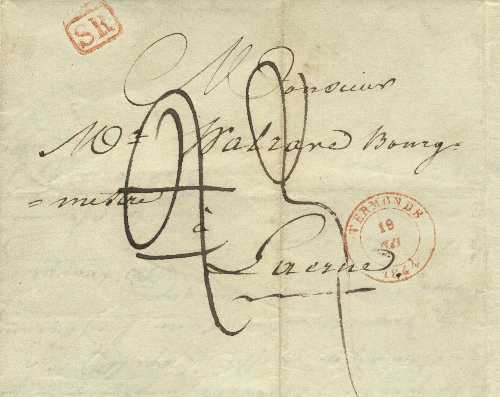 SR
Monsieur
Mr. Walrave Bourg-
= mestre
à
Laerne.
TERMONDE
19
1844